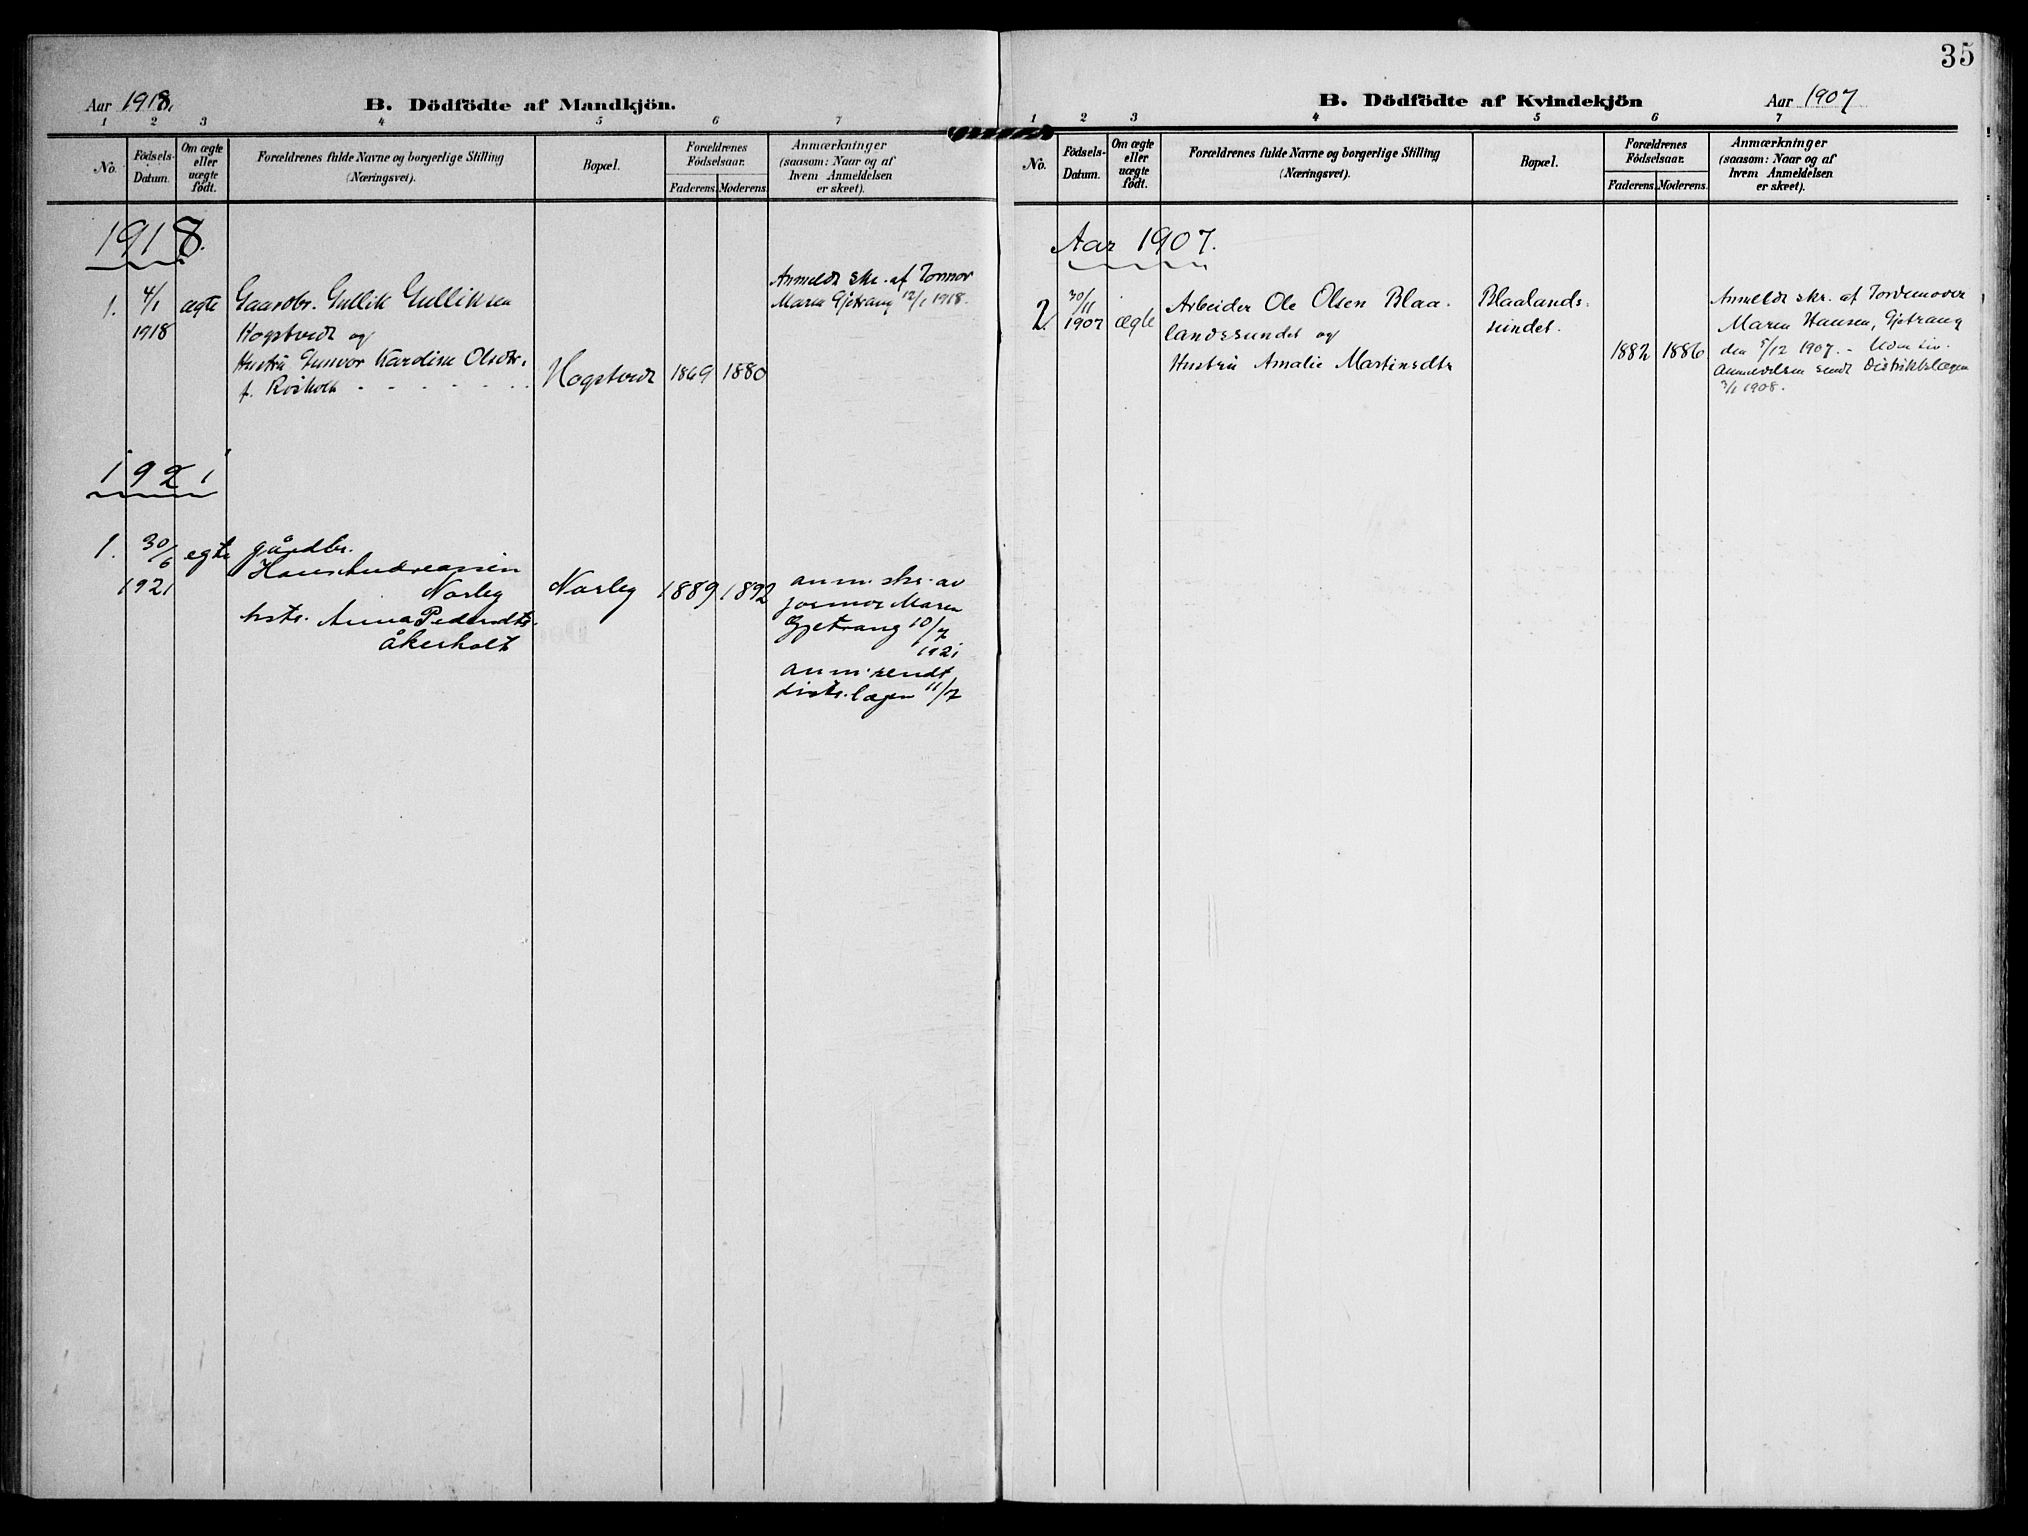 35
Aar 1918.
B. Dödfödte af Mandkjön.
1 2 3 4 5 6 7
No.
Födsels-Datum.
Om ægte eller uægte födt.
Forældrenes fulde Navne og borgerlige Stilling
(Næringsvei).
Bopæl.
Forældrenes Födselsaar.
Faderens. Moderens.
Anmærkninger
(saasom: Naar og af
hvem Anmeldelsen
er skeet).
1918.
1. 4/1 1918 ægte
Gaardbr. Gullik Gulliksen
Hogstvedt og
Hustru Gunvor Kardine Olsdtr.
f. Røsholt
Hogstvedt 1869 1880
Anmeldt skr. af Jormor
Maren Gjetrang 12/1 1918.
1921
1. 30/6 1921 egte
gårdbr.
Hans Andreassen
Narley
hstr. Anna Pedersdtr.
åkerholt
Narley 1889 1892
anm. skr. av
jormor Maren
Gjetrang 10/7
1921
anm. sendt
distr. lægen 11/7
B. Dödfödte af Kvindekjön
Aar 1907
1 2 3 4 5 6 7
No.
Födsels-Datum.
Om ægte eller uægte födt.
Forældrenes fulde Navne og borgerlige Stilling
(Næringsvei).
Bopæl.
Forældrenes Födselsaar.
Faderens. Moderens.
Anmærkninger
(saasom: Naar og af
hvem Anmeldelsen
er skeet).
Aar 1907.
2. 30/11 1907 ægte
Arbeider Ole Olsen Blaa-
landssundet og
Hustru Amalie Martinsdtr
Blaalands-
sundet.
1882 1886
Anmeldt skr. af Jordemoder
Maren Hansen, Gjetrang
den 5/12 1907. - Uden Liv.
Anmeldelsen sendt Distriktslægen
3/1 1908.